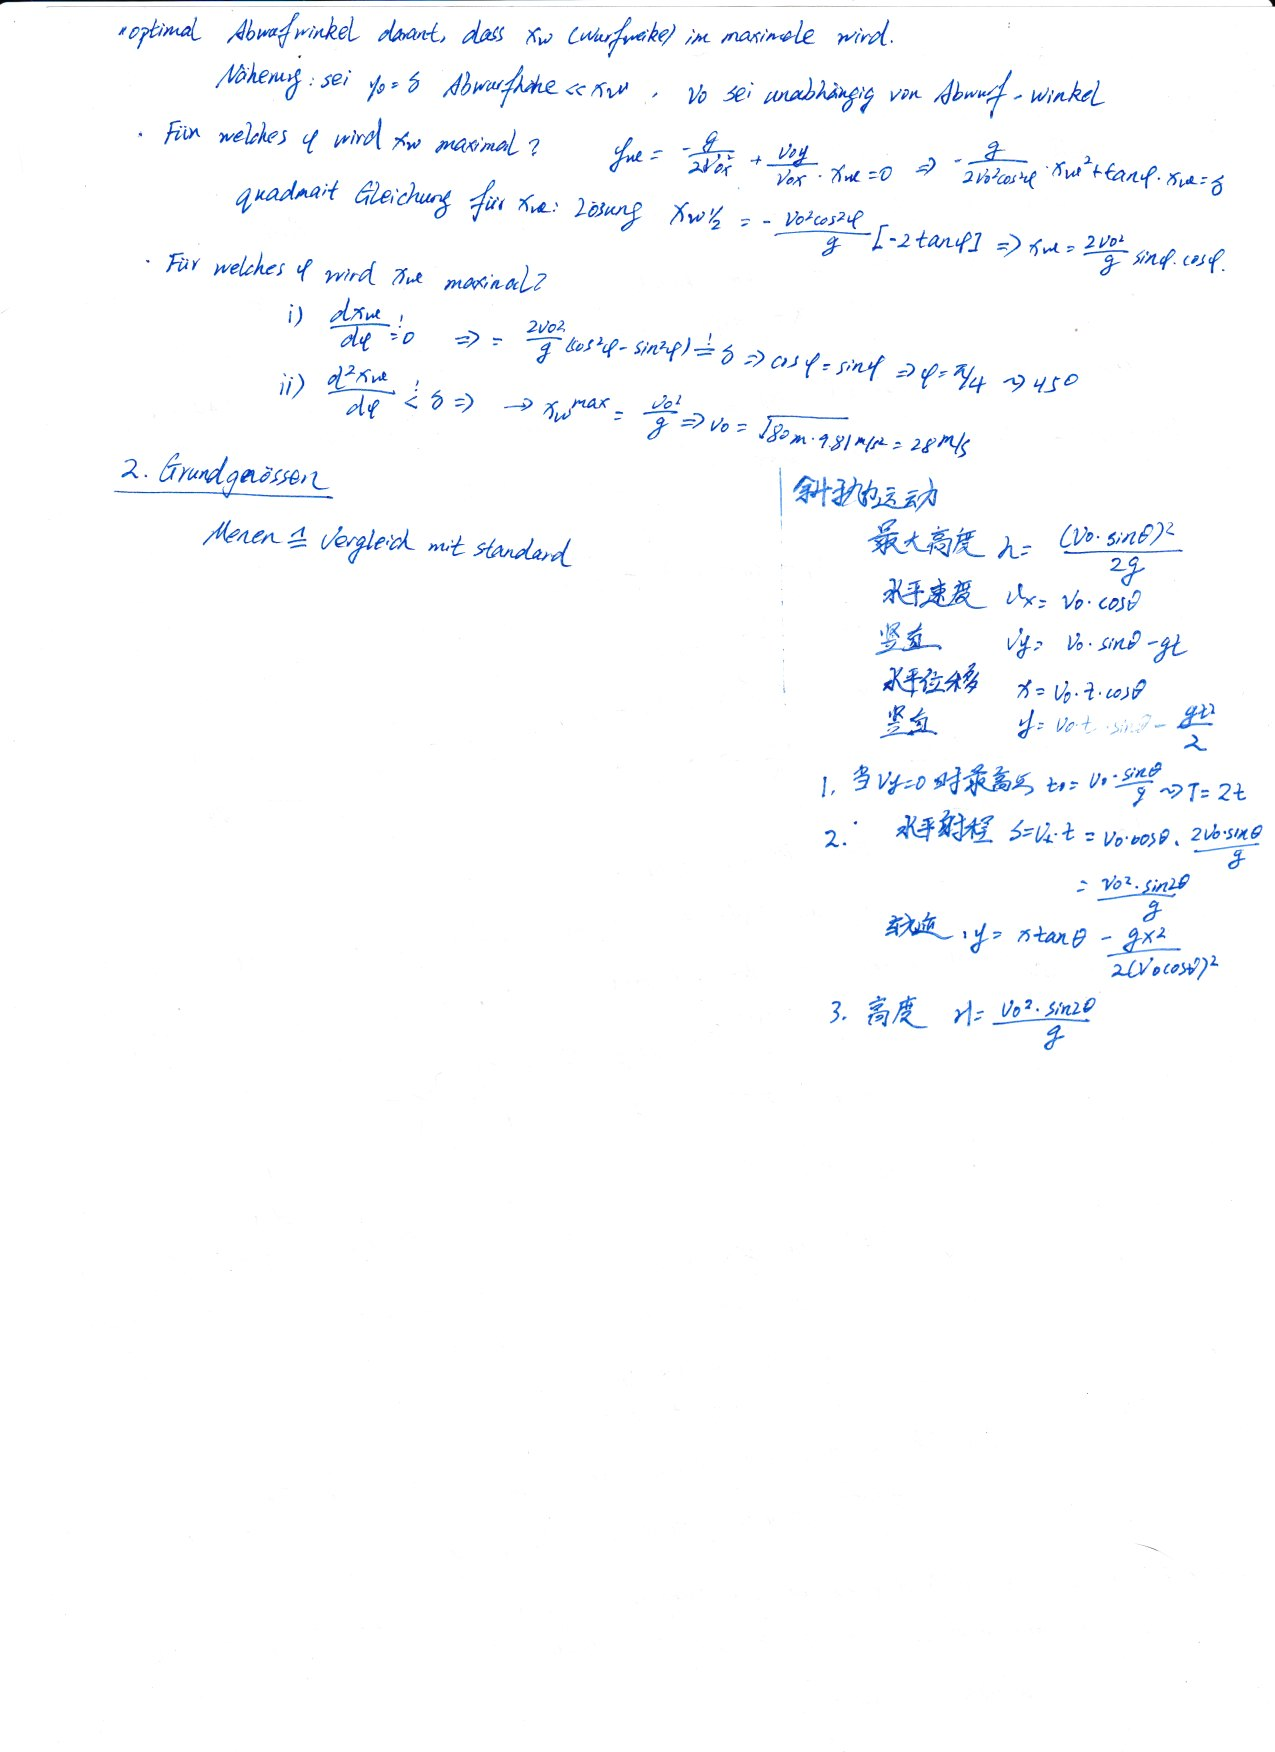 "optimal Abwurfwinkel darant, dass xw (Wurfweike) im maximole wird.
Näherung: sei y₀=δ Abwurfhöhe << xw, v₀ sei unabhängig von Abwurf-winkel
· Für welches φ wird xw maximal? ywe = -g/2v₀x² + v₀y/v₀x · xwe = 0 ⇒ -g/2v₀²cos²φ · xwe² + tanφ · xwe = δ
quadmait Gleichung für xwe: Lösung xw½ = - v₀²cos²φ/g [-2tanφ] ⇒ xwe = 2v₀²/g sinφ·cosφ.
· Für welches φ wird xwe maximal?
i) dxwe/dφ =! 0 ⇒ = 2v₀²/g (cos²φ - sin²φ) =! δ ⇒ cosφ = sinφ ⇒ φ = π/4 ⇝ 450
ii) d²xwe/dφ <! δ ⇒ → xw^max = v₀²/g ⇒ v₀ = √80m·9.81m/s² = 28m/s
2. Grundgenössen
Menen ≙ Vergleich mit standard
斜抛的运动
最大高度 h = (v₀·sinθ)²/2g
水平速度 vx = v₀·cosθ
竖直 vy = v₀·sinθ - gt
水平位移 x = v₀·t·cosθ
竖直 y = v₀·t·sinθ - gt²/2
1. 当vy=0时最高点 t₀ = v₀·sinθ/g ⇝ T = 2t
2. 水平射程 S = vx·t = v₀·cosθ · 2v₀·sinθ/g
= v₀²·sin2θ/g
轨迹, y = xtanθ - gx²/2(v₀cosθ)²
3. 高度 H = v₀²·sin2θ/g